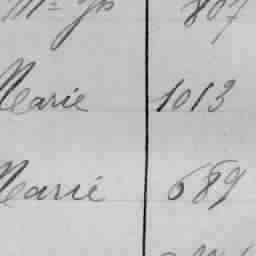 807
Marie 1013
Marie 689